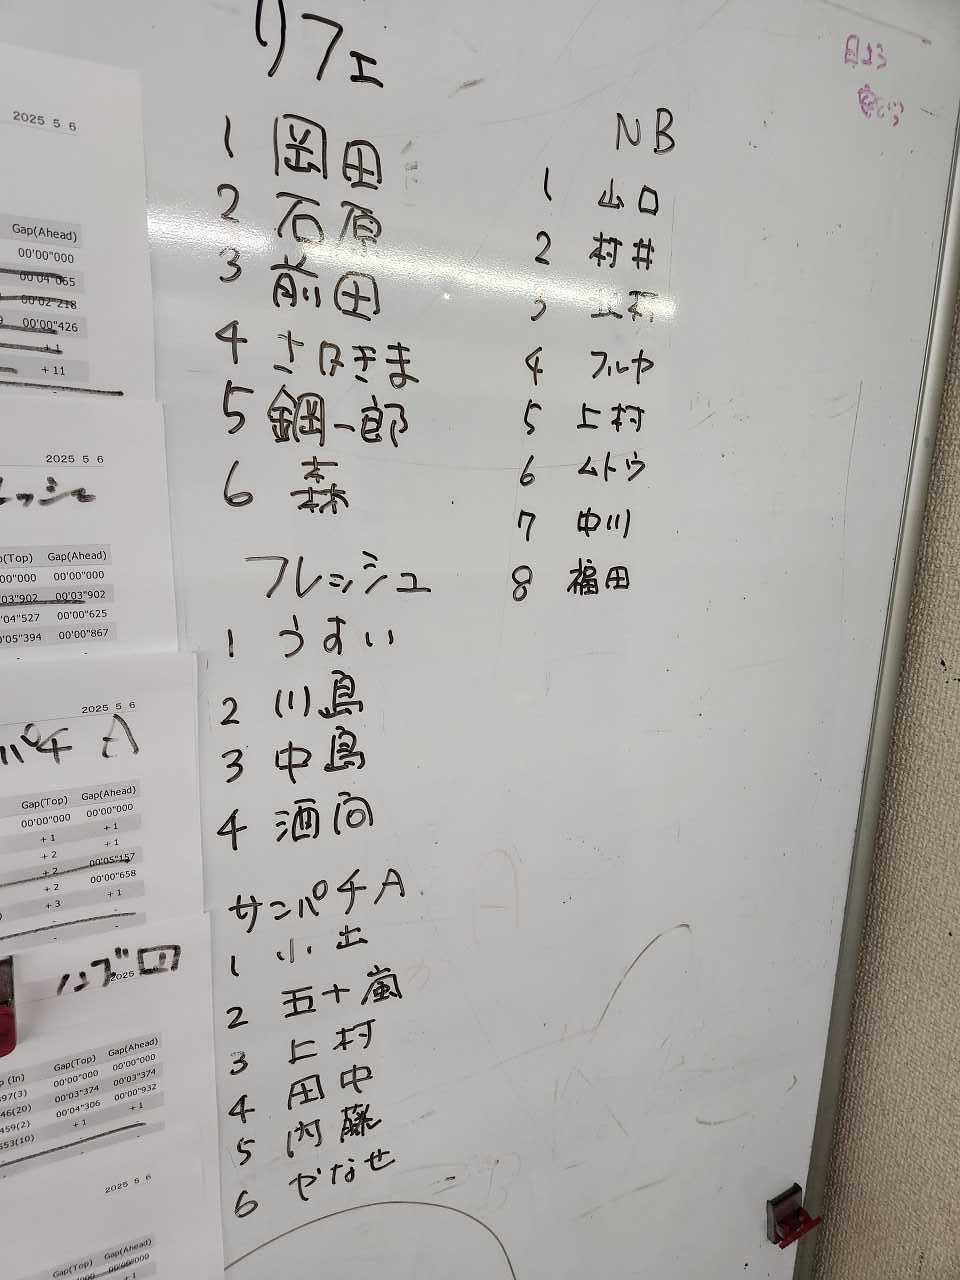 リフェ
1 岡田
2 石原
3 前田
4
5 鋼一郎
6 森
フレッシュ
1 うすい
2 川島
3 中島
4 酒向
サンパチA
1 小出
2 五十嵐
3 上村
4 田中
5 内藤
6 やなせ
NB
1 山口
2 村井
3
4 フルヤ
5 上村
6 ムトウ
7 中川
8 福田
2025 5 6
Gap(Ahead)
00'00"000
00'04"065
00'02"218
00'00"426
+ 1
+ 11
2025 5 6
レッシュ
(Top) Gap(Ahead)
00"000 00'00"000
03"902 00'03"902
'04"527 00'00"625
'05"394 00'00"867
2025 5 6
パチ A
Gap(Top) Gap(Ahead)
00'00"000 00'00"000
+ 1 + 1
+ 2 + 1
+ 2 00'05"157
+ 2 00'00"658
+ 3 + 1
2025
(In) Gap(Top) Gap(Ahead)
397(3) 00'00"000 00'00"000
46(20) 00'03"374 00'03"374
459(2) 00'04"306 00'00"932
553(10) + 1 + 1
2025 5 6
Gap(Top) Gap(Ahead)